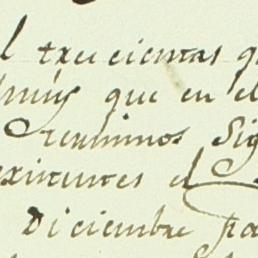 l trecientas q
que en el
terminos Sig
existentes el
Diciembre